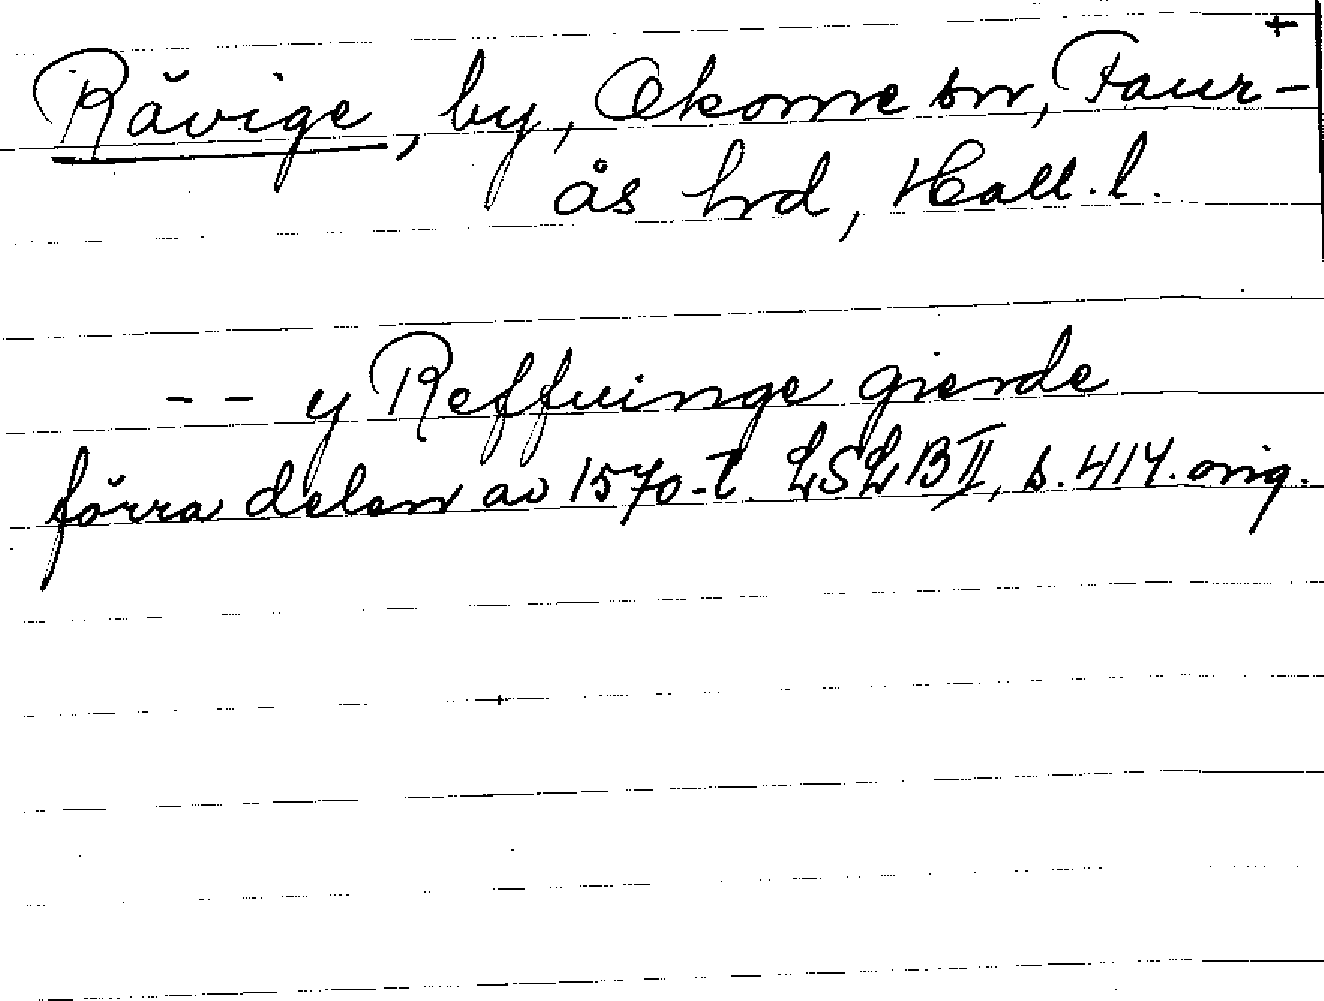 +
Rävige, by, Okome sn, Faur-
ås hrd, Hall. l.
-- y Reffuinge gierde
förra delen av 1570-t. LSLB II, s. 414. orig.